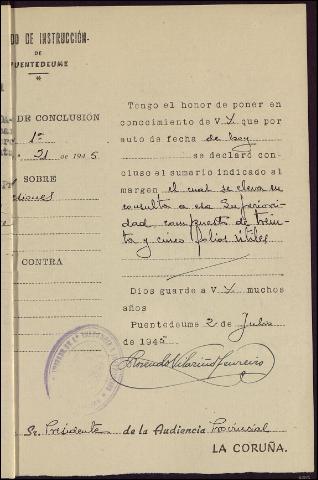 DO DE INSTRUCCIÓN
DE
PUENTEDEUME
DE CONCLUSIÓN
1º
21 de 1945
SOBRE
CONTRA
Tengo el honor de poner en
conocimiento de V. Y. que por
auto de fecha de hoy
se declaró con-
cluso el sumario indicado al
margen el cual se eleva en
consulta a esa Superiori-
dad compuesto de trein-
ta y cinco folios útiles
Dios guarde a V. Y. muchos
años
Puentedeume 2 de Julio
de 1945
Sr. Presidente de la Audiencia Provincial
LA CORUÑA.